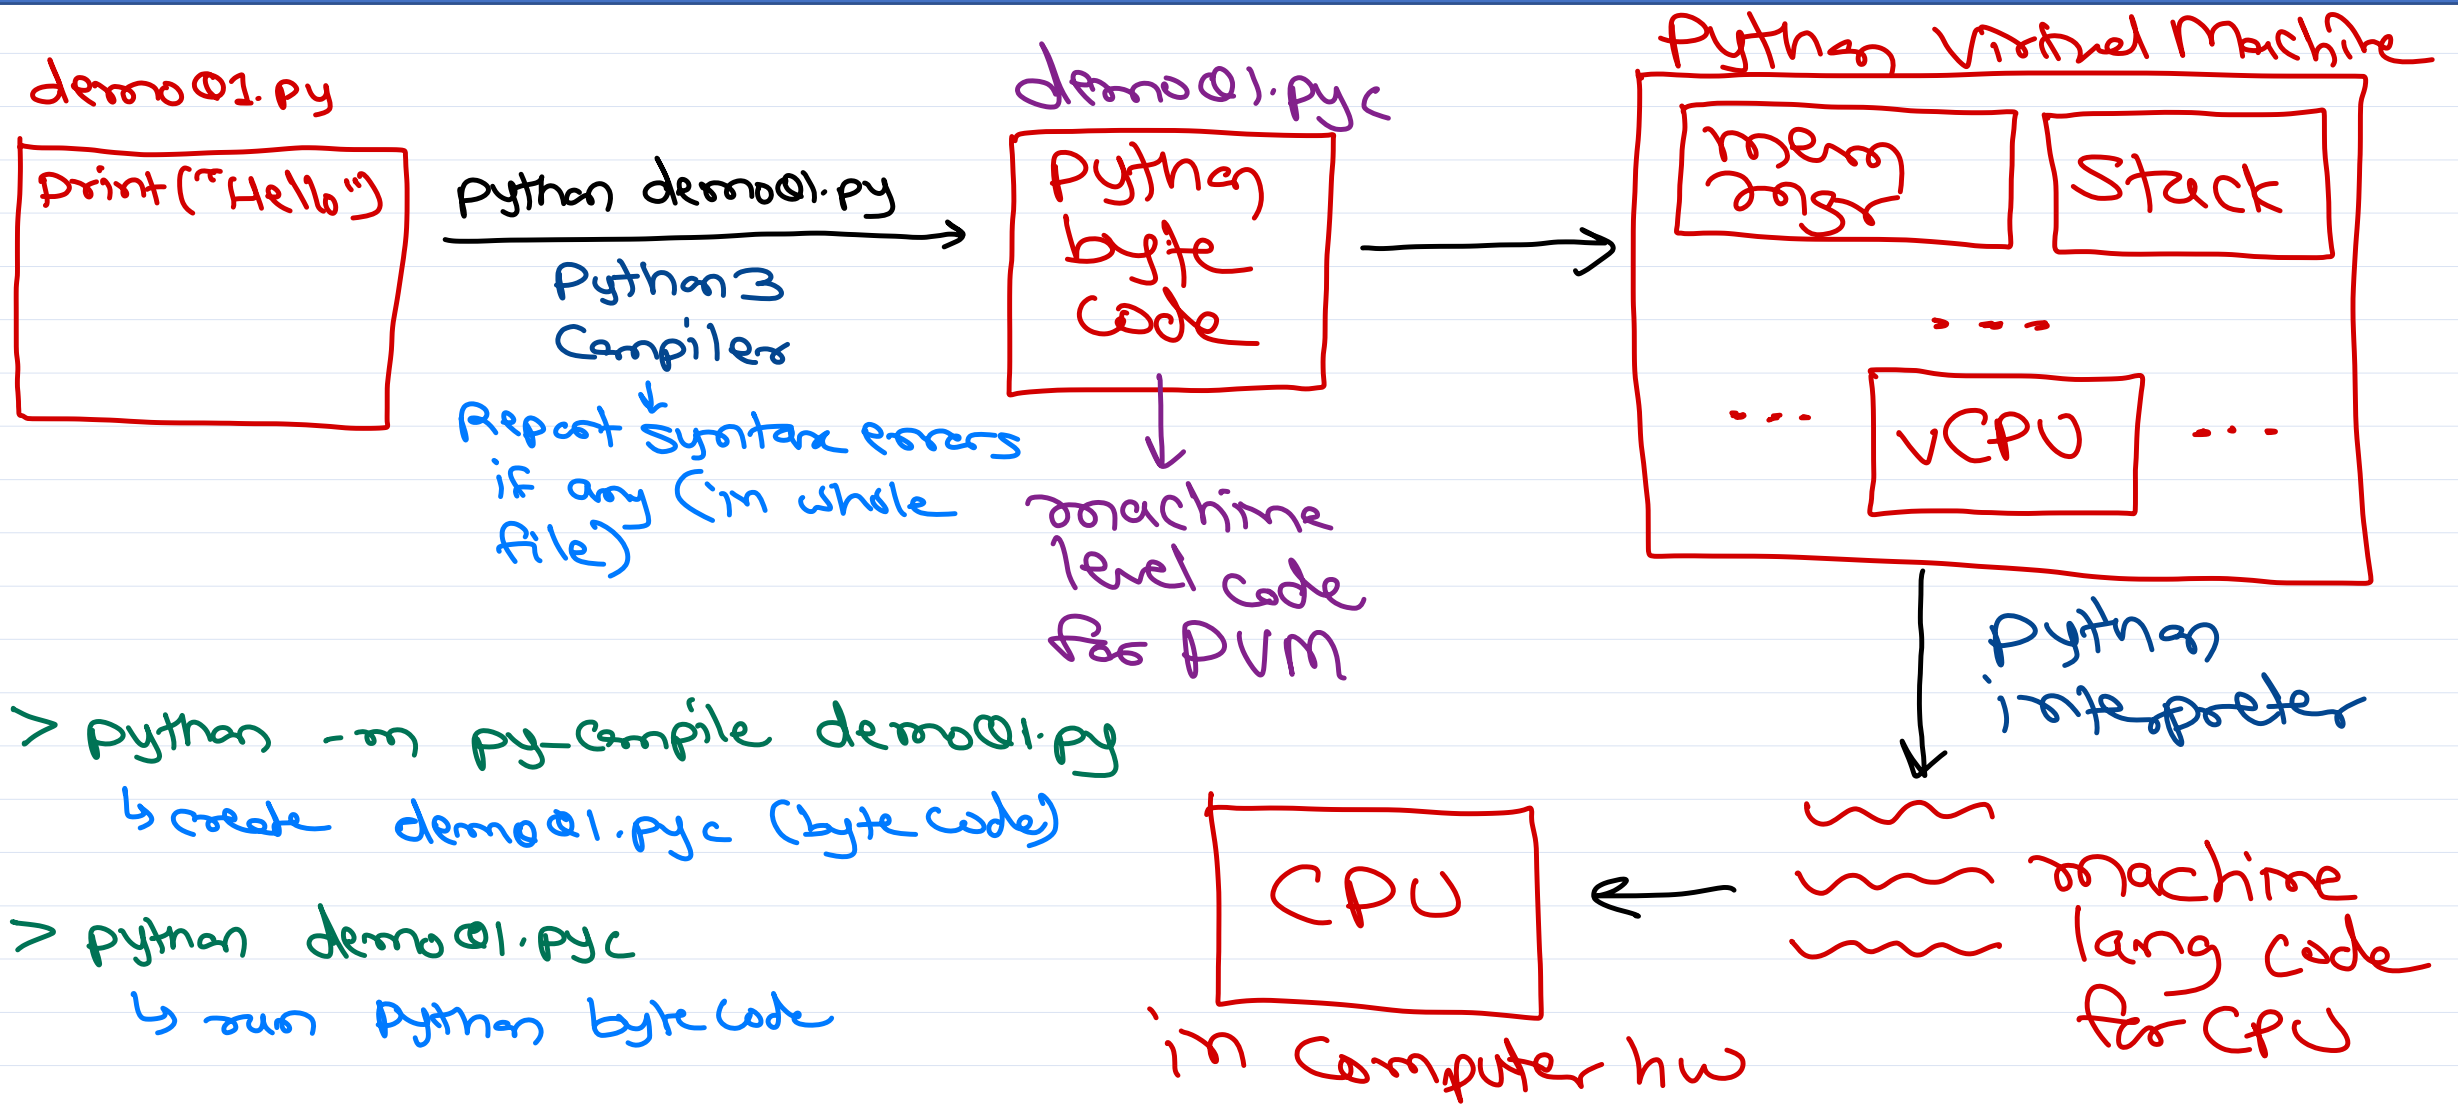 demo01.py
print("Hello")
python demo01.py
Python3
Compiler
Report syntax errors
if any (in whole
file)
demo01.pyc
Python
byte
code
machine
level code
for PVM
Python Virtual Machine
mem
mgr
Stack
...
...
vCPU
...
python
interpreter
machine
lang code
for CPU
CPU
in Computer hw
> python -m py_compile demo01.py
↳ create demo01.pyc (byte code)
> python demo01.pyc
↳ run python byte code